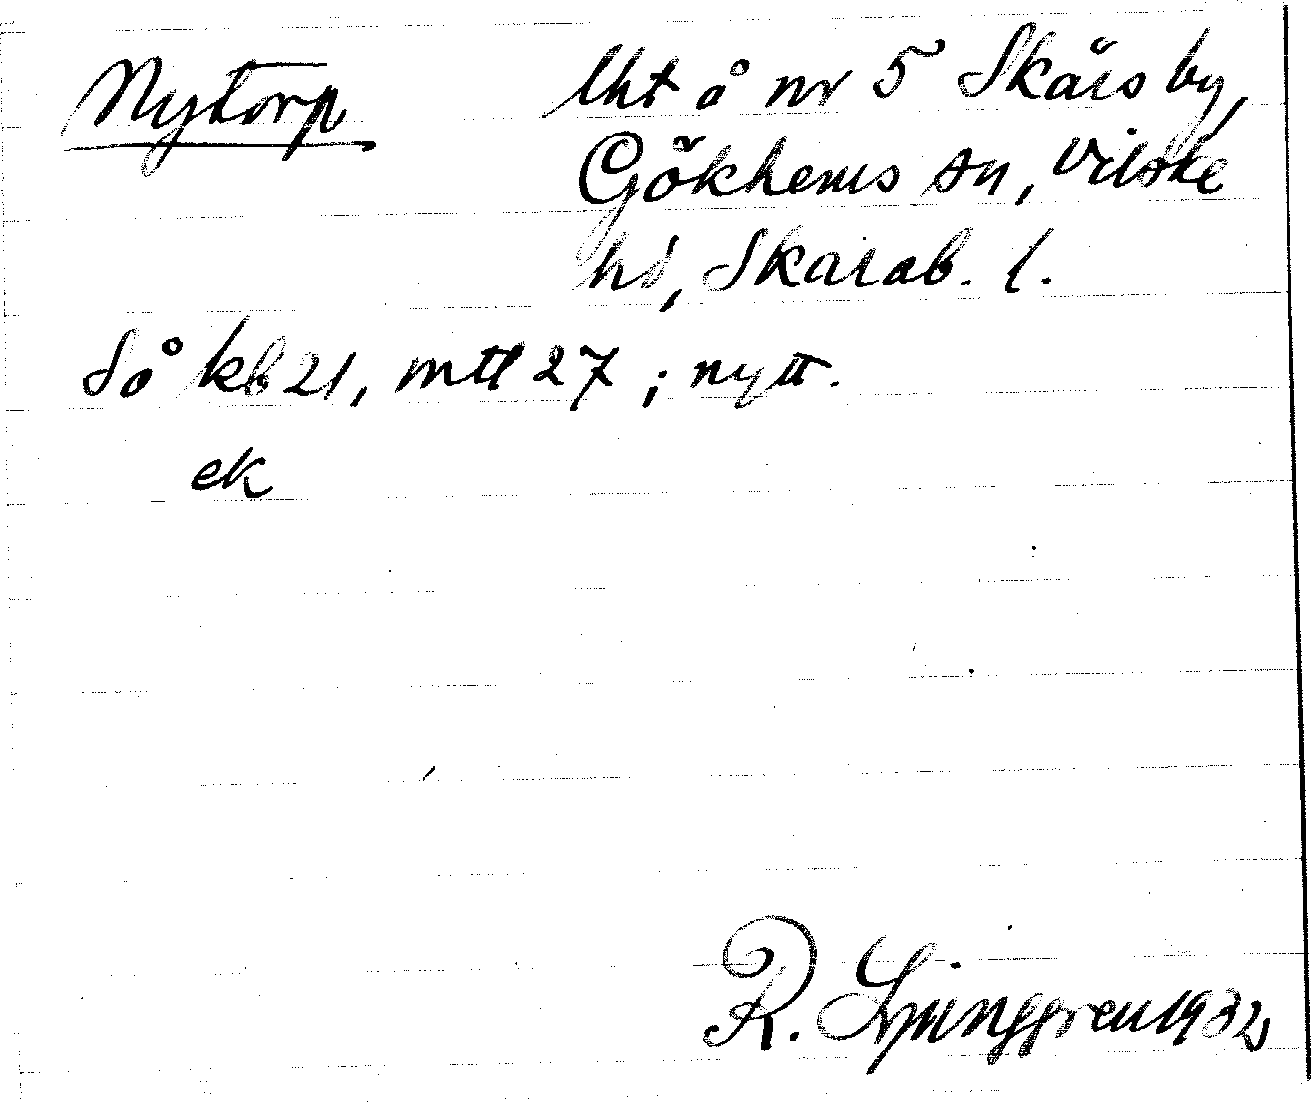 Nytorp lht å nr 5 Skårs by,
Gökhems sn, Vilske
hd, Skarab. l.
Så kb 21, mtl 27; nytt.
ek
R. Ljunggren 1932